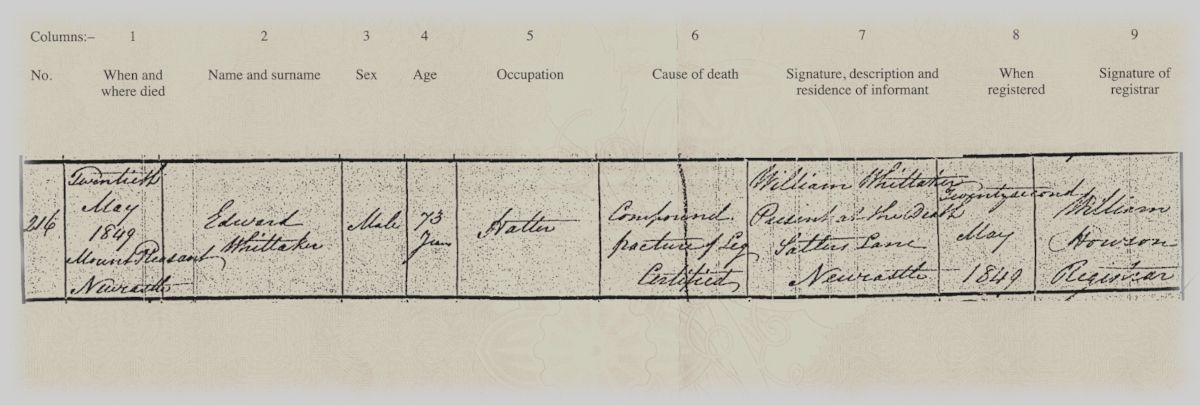 Columns:– 1 2 3 4 5 6 7 8 9
No. When and Name and surname Sex Age Occupation Cause of death Signature, description and When Signature of
where died residence of informant registered registrar
216
Twentieth
May
1849
Mount Pleasant
Newcastle
Edward
Whittaker
Male
73
Years
Hatter
Compound
fracture of Leg
Certified
William Whittaker
Present at the Death
Salters Lane
Newcastle
Twenty second
May
1849
William
Howson
Registrar